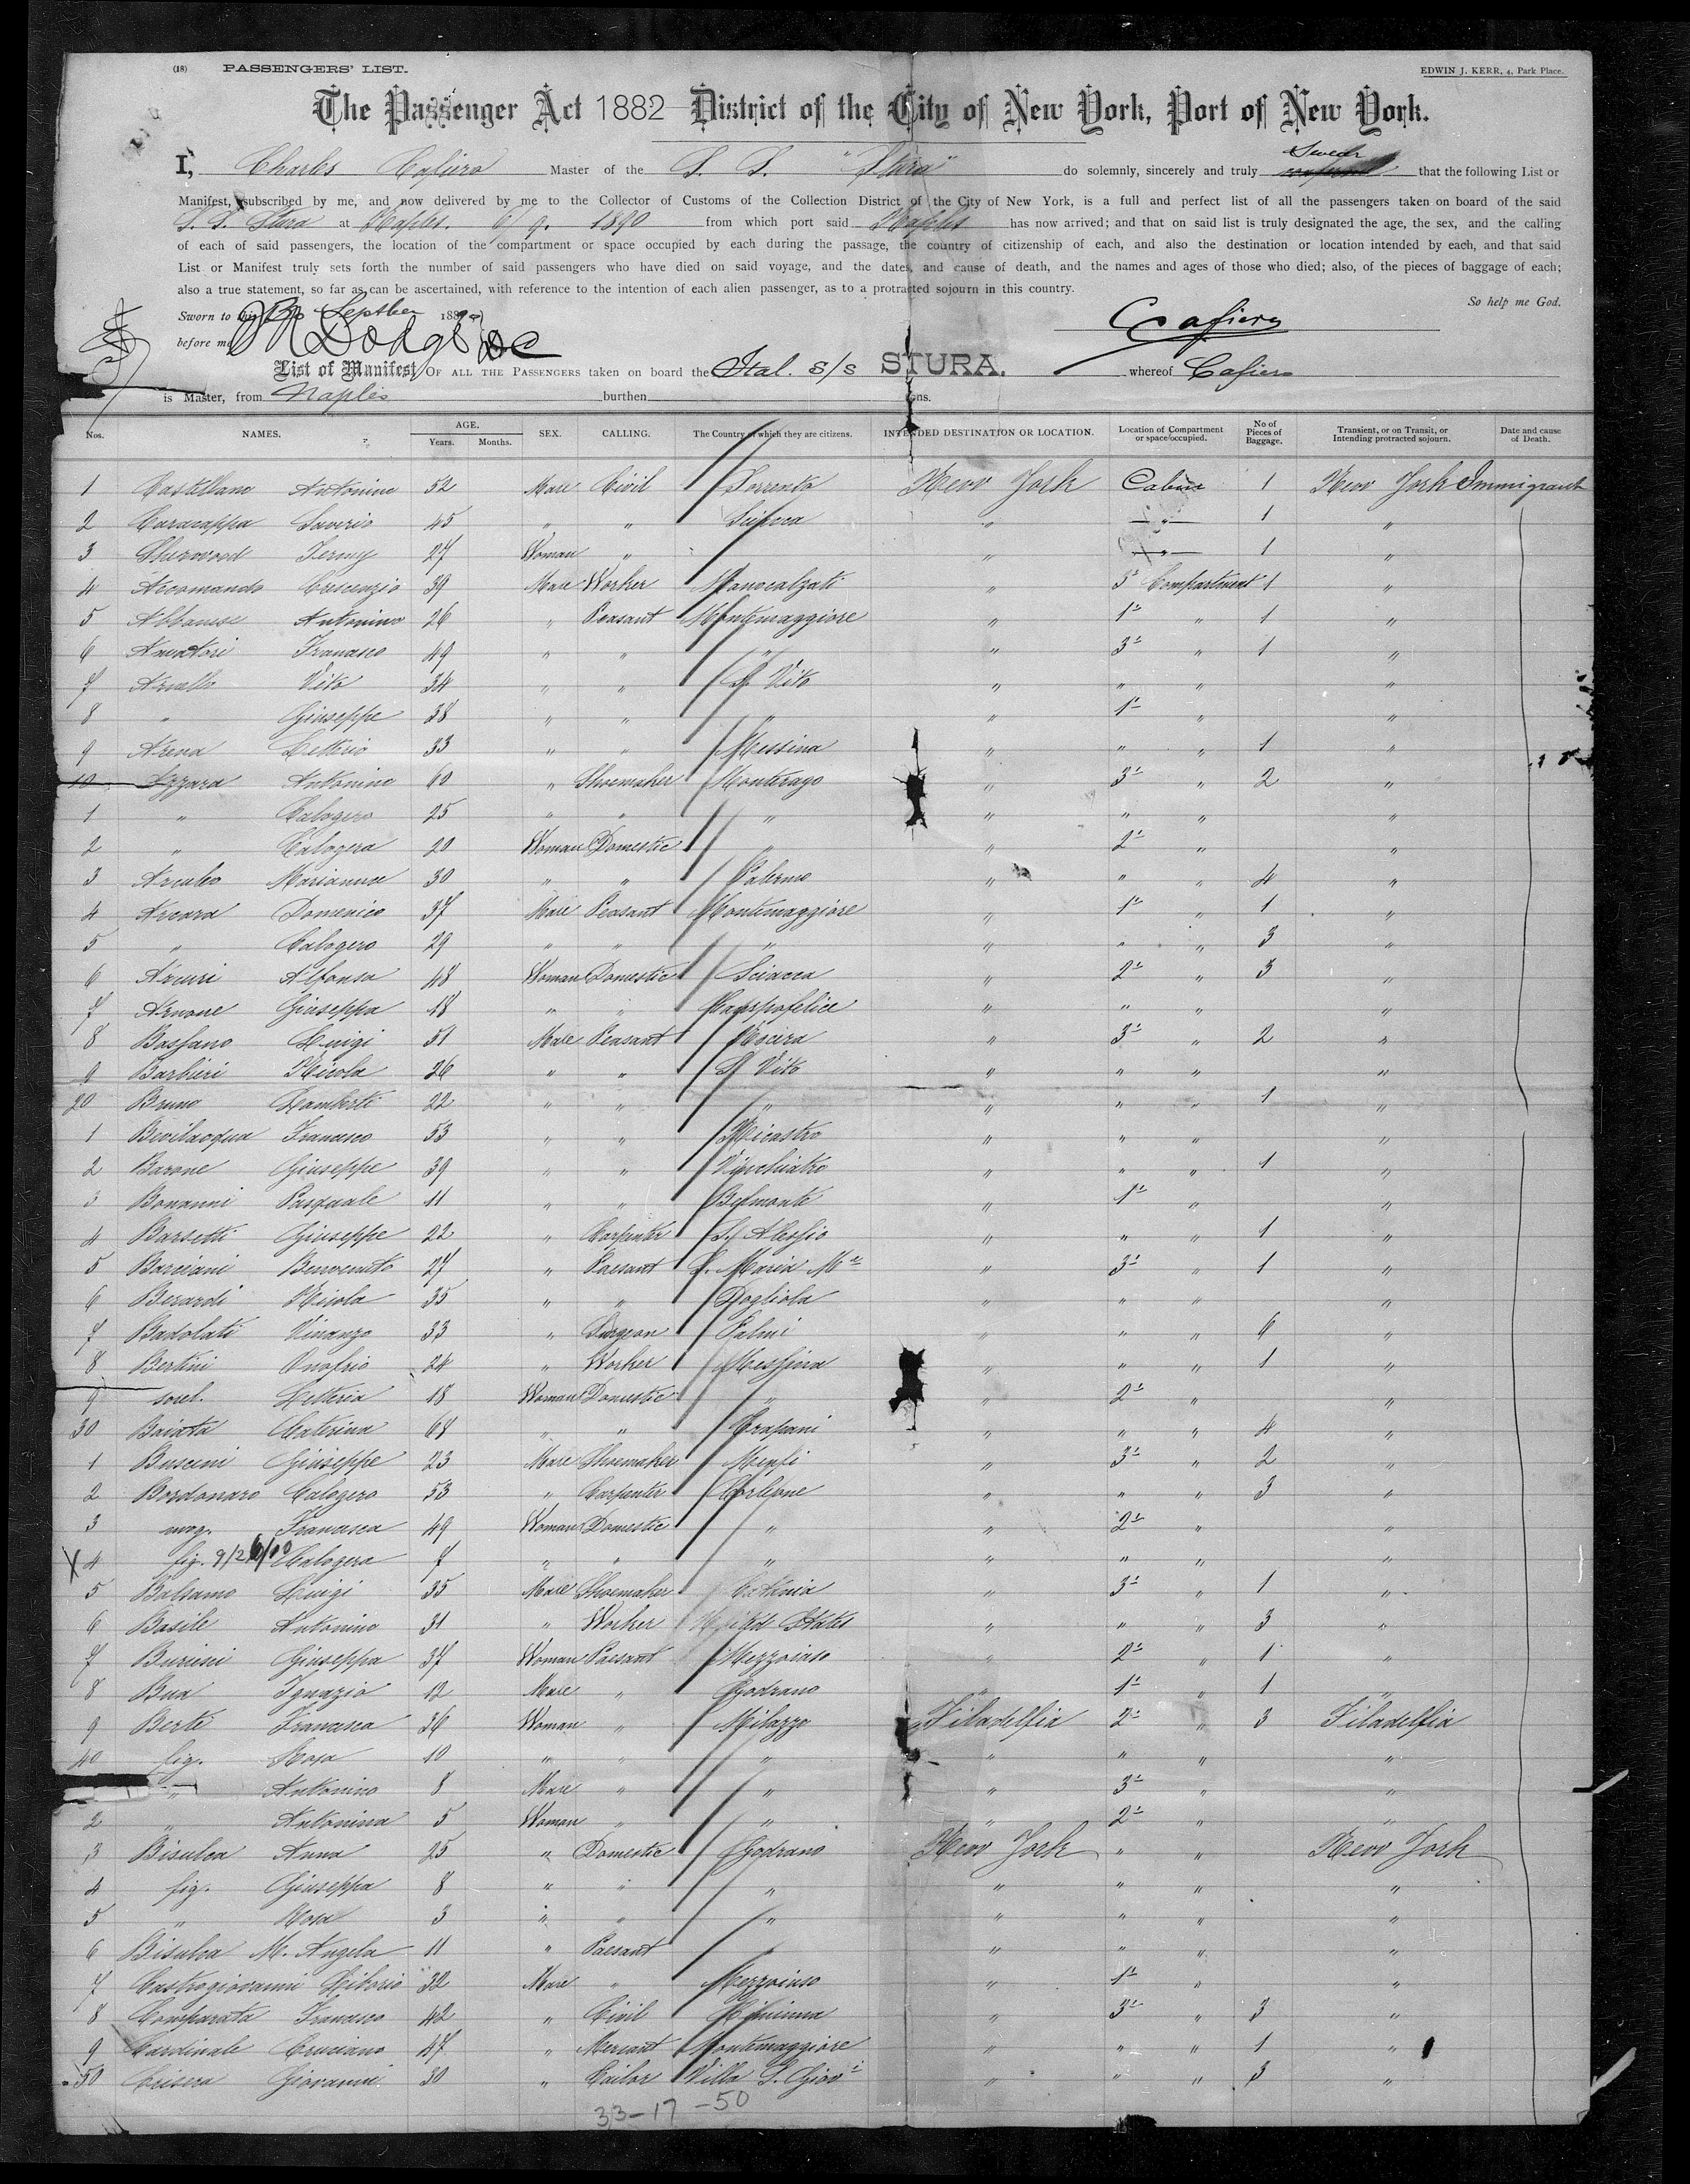 (18) PASSENGERS' LIST. EDWIN J. KERR, 4, Park Place.
The Passenger Act 1882 District of the City of New York, Port of New York.
I, Charles Cafiero Master of the S. S. "Stura" do solemnly, sincerely and truly Swear that the following List or
Manifest, subscribed by me, and now delivered by me to the Collector of Customs of the Collection District of the City of New York, is a full and perfect list of all the passengers taken on board of the said
S. S. Stura at Naples. 6/9. 1890 from which port said Naples has now arrived; and that on said list is truly designated the age, the sex, and the calling
of each of said passengers, the location of the compartment or space occupied by each during the passage, the country of citizenship of each, and also the destination or location intended by each, and that said
List or Manifest truly sets forth the number of said passengers who have died on said voyage, and the dates, and cause of death, and the names and ages of those who died; also, of the pieces of baggage of each;
also a true statement, so far as can be ascertained, with reference to the intention of each alien passenger, as to a protracted sojourn in this country.
So help me God.
Sworn to this Septber 188 Cafiero
before me
List of Manifest OF ALL THE PASSENGERS taken on board the Ital. S/S STURA. whereof Cafiero
is Master, from Naples burthen tons.
Nos. NAMES. AGE. Years. Months. SEX. CALLING. The Country of which they are citizens. INTENDED DESTINATION OR LOCATION. Location of Compartment or space occupied. No of Pieces of Baggage. Transient, or on Transit, or Intending protracted sojourn. Date and cause of Death.
1 Castellano Antonino 52 Male Civil Sorrento New York Cabin 1 New York Immigrant
2 Caracappa Saverio 45 " " " — " — 1 "
3 Sherwood 27 Woman " " — " — 1 "
4 Accomando Crescenzio 39 Male Worker Manocalzati " 3a Compartment 1 "
5 Albanese Antonino 26 " Peasant Montemaggiore " 1a " 1 "
6 Francesco 49 " " " " 3a " 1 "
7 Vito 34 " " S. Vito " " " "
8 " Giuseppe 38 " " " " 1a " "
9 Arena Letterio 33 " " Messina " " " 1 "
10 Azzara Antonino 60 " Shoemaker " 3a " 2 "
1 " Calogero 25 " " " " " " "
2 " Calogera 20 Woman Domestic " " 2a " "
3 Marianna 30 " " Palermo " " " 4 "
4 Arcara Domenico 37 Male Peasant Montemaggiore " 1a " 1 "
5 " Calogero 29 " " " " " " 3 "
6 Arcuri Alfonsa 48 Woman Domestic Sciacca " 2a " 3 "
7 Arnone Giuseppa 18 " " Campofelice " " " "
8 Bassano Luigi 51 Male Peasant Nocera " 3a " 2 "
9 Barbieri Nicola 26 " " S. Vito " " " "
20 Bruno Lamberti 22 " " " " " " 1 "
1 Bevilacqua Francesco 53 " " Nicastro " " " "
2 Barone Giuseppe 39 " " Vinchiatro " " " 1 "
3 Bonanni Pasquale 11 " " Belmonte " 1a " "
4 Barsetti Giuseppe 22 " Carpenter S. Alessio " " " 1 "
5 Barciani Benvenuto 27 " Paesant S. Maria Me " 3a " 1 "
6 Berardi Nicola 35 " " Dogliola " " " "
7 Badolati Vinanzo 33 " Surgeon Palmi " " " 6 "
8 Bertini Onofrio 24 " Worker Messina " " " 1 "
9 sorel. Letteria 18 Woman Domestic " " 2a " "
30 Baiata Caterina 68 " " Trapani " " " 4 "
1 Buscemi Giuseppe 23 Male Shoemaker Menfi " 3a " 2 "
2 Bordonaro Calogero 53 " Carpenter Corleone " " " 3 "
3 mog. Francesca 49 Woman Domestic " " 2a " "
X 4 fig. Calogera 7 " " " " " " "
5 Balsamo Luigi 35 Male Shoemaker Catania " 3a " 1 "
6 Basile Antonino 31 " Worker United States " " " 3 "
7 Giuseppa 37 Woman Paesant Mezzoiuso " 2a " 1 "
8 Bua Ignazio 12 Male " Godrano " 1a " 1 "
9 Berte Francesca 36 Woman " Milazzo Filadelfia 2a " 3 Filadelfia
40 fig. Rosa 10 " " " " " " "
" Antonino 8 Male " " " 3a " "
2 " Antonina 5 Woman " " " 2a " "
3 Bisulca Anna 25 " Domestic Godrano New York " " New York
4 fig. Giuseppa 8 " " " " " " "
5 " Rosa 3 " " " " " " "
6 Bisulca M. Angela 11 " Paesant " " " " "
7 Castrogiovanni Liborio 32 Male " Mezzoiuso " 1a " "
8 Comparata Francesco 42 " Civil " 3a " 3 "
9 Cardinale Cruciano 47 " Mercant Montemaggiore " " " 1 "
50 Crisera Giovanni 30 " Tailor Villa S. Giovi " " " 3 "
33-17-50